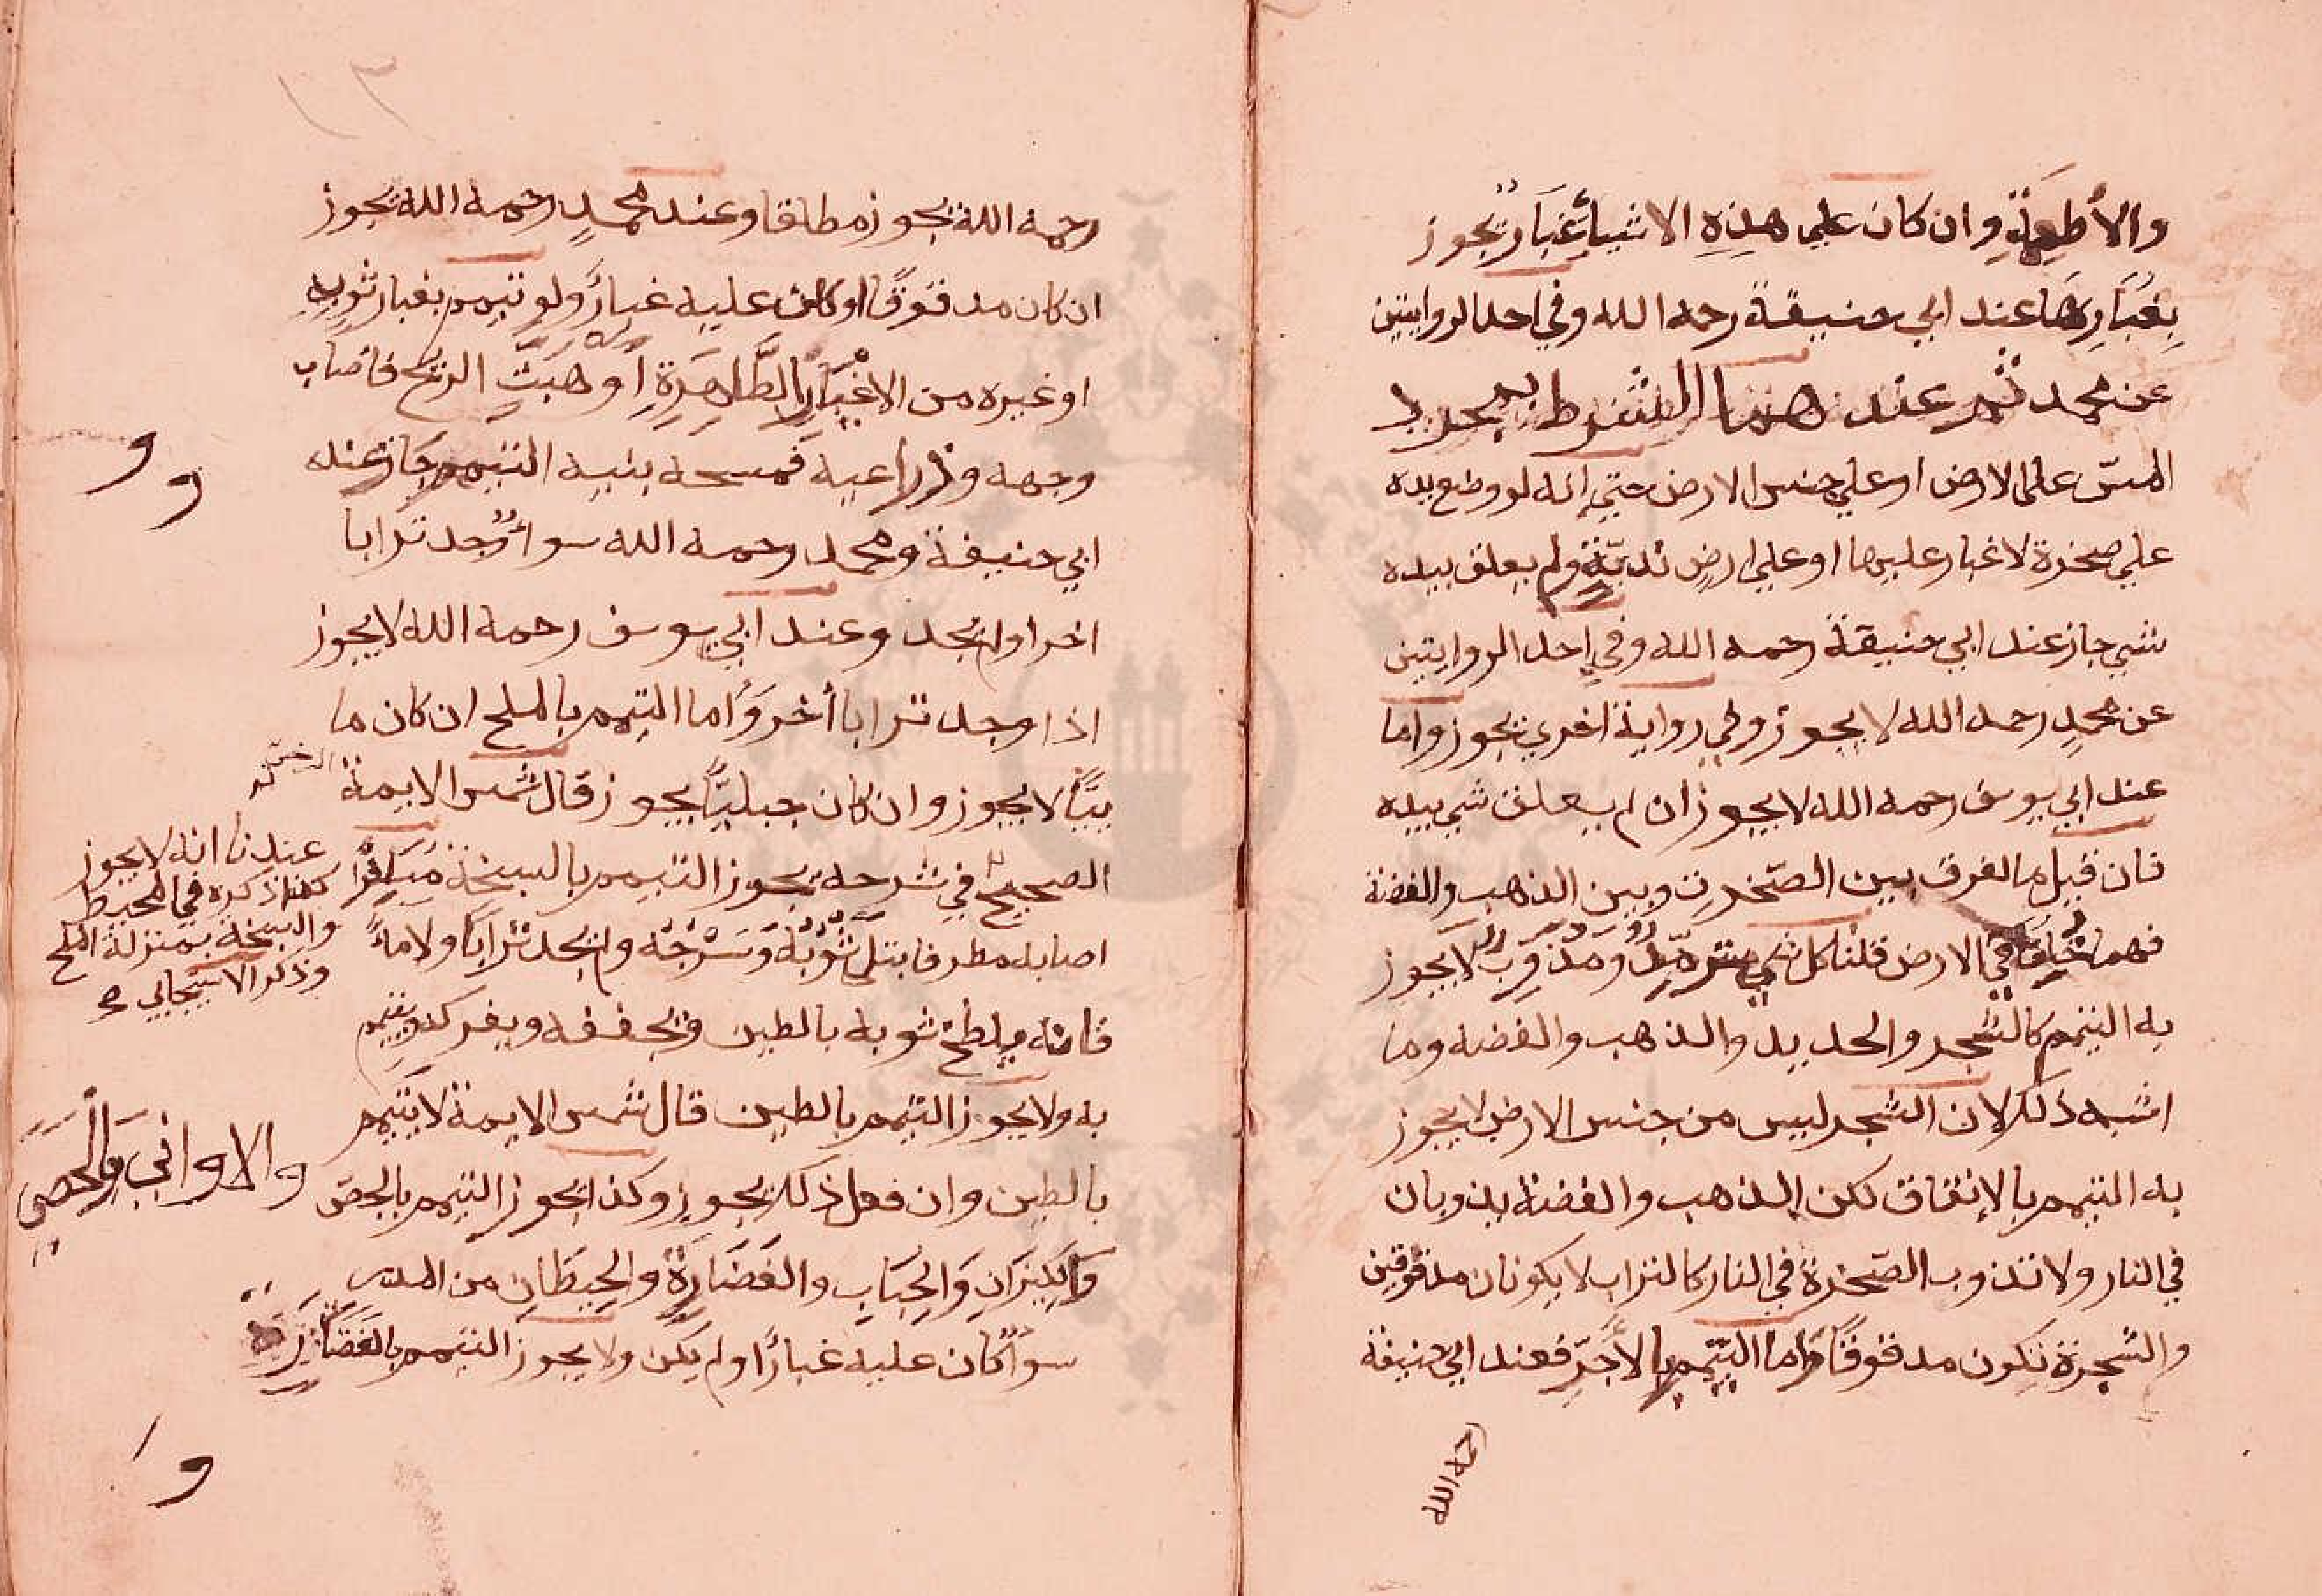 والأطعمة وان كان علي هذه الاشياء غبار يجوز
بغبارها عند ابي حنيفة رحمه الله وفي احد الروايتين
عن محمد ثم عند هما الشرط بمجرد
المس على الارض او علي جنس الارض حتي انه لو وضع يده
علي صخرة لا غبار عليها او علي ارض ندية ولم يعلق بيده
شي جاز عند ابي حنيفة رحمه الله وفي احد الروايتين
عن محمد رحمه الله لا يجوز وفي رواية اخري يجوز واما
عند ابي يوسف رحمه الله لا يجوز ان لم يعلق شي بيده
فان قيل ما الفرق بين الصخرة وبين الذهب والفضة
فهما خلقا في الارض قلنا كل شي يذوب لا يجوز
به التيمم كالشجر والحديد والذهب والفضه وما
اشبه ذلك لان الشجر ليس من جنس الارض لا يجوز
به التيمم بالإتفاق لكن الذهب والفضة يذوبان
في النار ولا تذوب الصخرة في النار كالتراب لا يكونان مدقوقين
والشجرة تكون مدقوقًا واما التيمم بالأجر فعند ابي حنيفة
رحمه الله
١٣
رحمه الله يجوز مطلقا وعند محمد رحمه الله يجوز
ان كان مدقوقًا او كان عليه غبار ولو تيمم بغبار ثوبه
او غيره من الاغبار الطاهرة او هبت الريح فاصاب
وجهه وذراعيه فمسحه بنية التيمم جاز عند
ابي حنيفة ومحمد رحمه الله سواء وجد ترابا
اخر اولم يجد وعند ابي يوسف رحمه الله لا يجوز
اذا وجد ترابا أخر وأما التيمم بالملح ان كان ما
ئيًا لا يجوز وان كان جبليًا يجوز قال شمس الايمة
الصحيح
عندنا انه لا يجوز
كذا ذكره في المحيط
والسبخة بمنزلة الملح
وذكر الاسبيجابي
في شرحه يجوز التيمم بالسبخة مسافر
اصابه مطر فابتل ثوبه وسرجه ولم يجد ترابا ولا ماء
فانه يلطخ ثوبه بالطين ويجففه ويفركه ويتيمم
به ولا يجوز التيمم بالطين قال شمس الايمة لا يتيمم
بالطين وان فعل ذلك يجوز وكذا يجوز التيمم بالجص
والاواني والحصي
والكيزان والحباب والغضارة والحيطان من المدر
سواء كان عليه غبارًا ولم يكن ولا يجوز التيمم بالغضارة